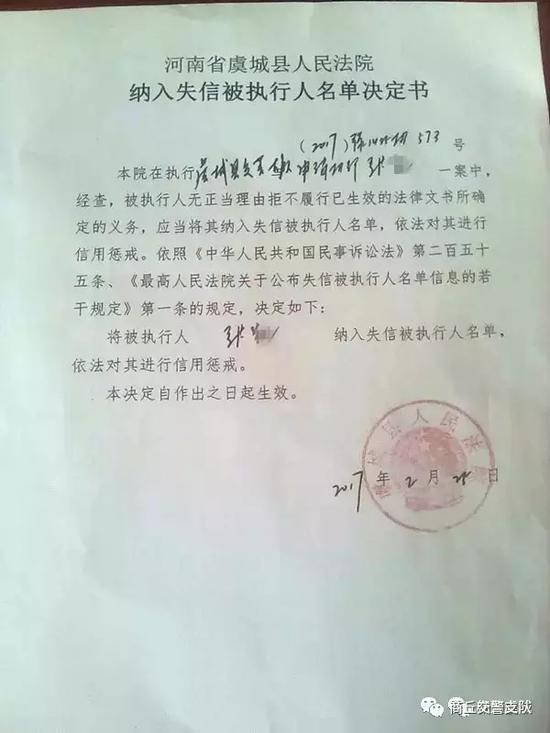 河南省虞城县人民法院
纳入失信被执行人名单决定书
(2017) 573 号
本院在执行虞城县 申请执行 张 一案中,
经查，被执行人无正当理由拒不履行已生效的法律文书所确
定的义务，应当将其纳入失信被执行人名单，依法对其进行
信用惩戒。依照《中华人民共和国民事诉讼法》第二百五十五
条、《最高人民法院关于公布失信被执行人名单信息的若
干规定》第一条的规定，决定如下：
将被执行人 张 纳入失信被执行人名单，
依法对其进行信用惩戒。
本决定自作出之日起生效。
虞城县人民法院
2017 年 2 月 日
商丘交警支队